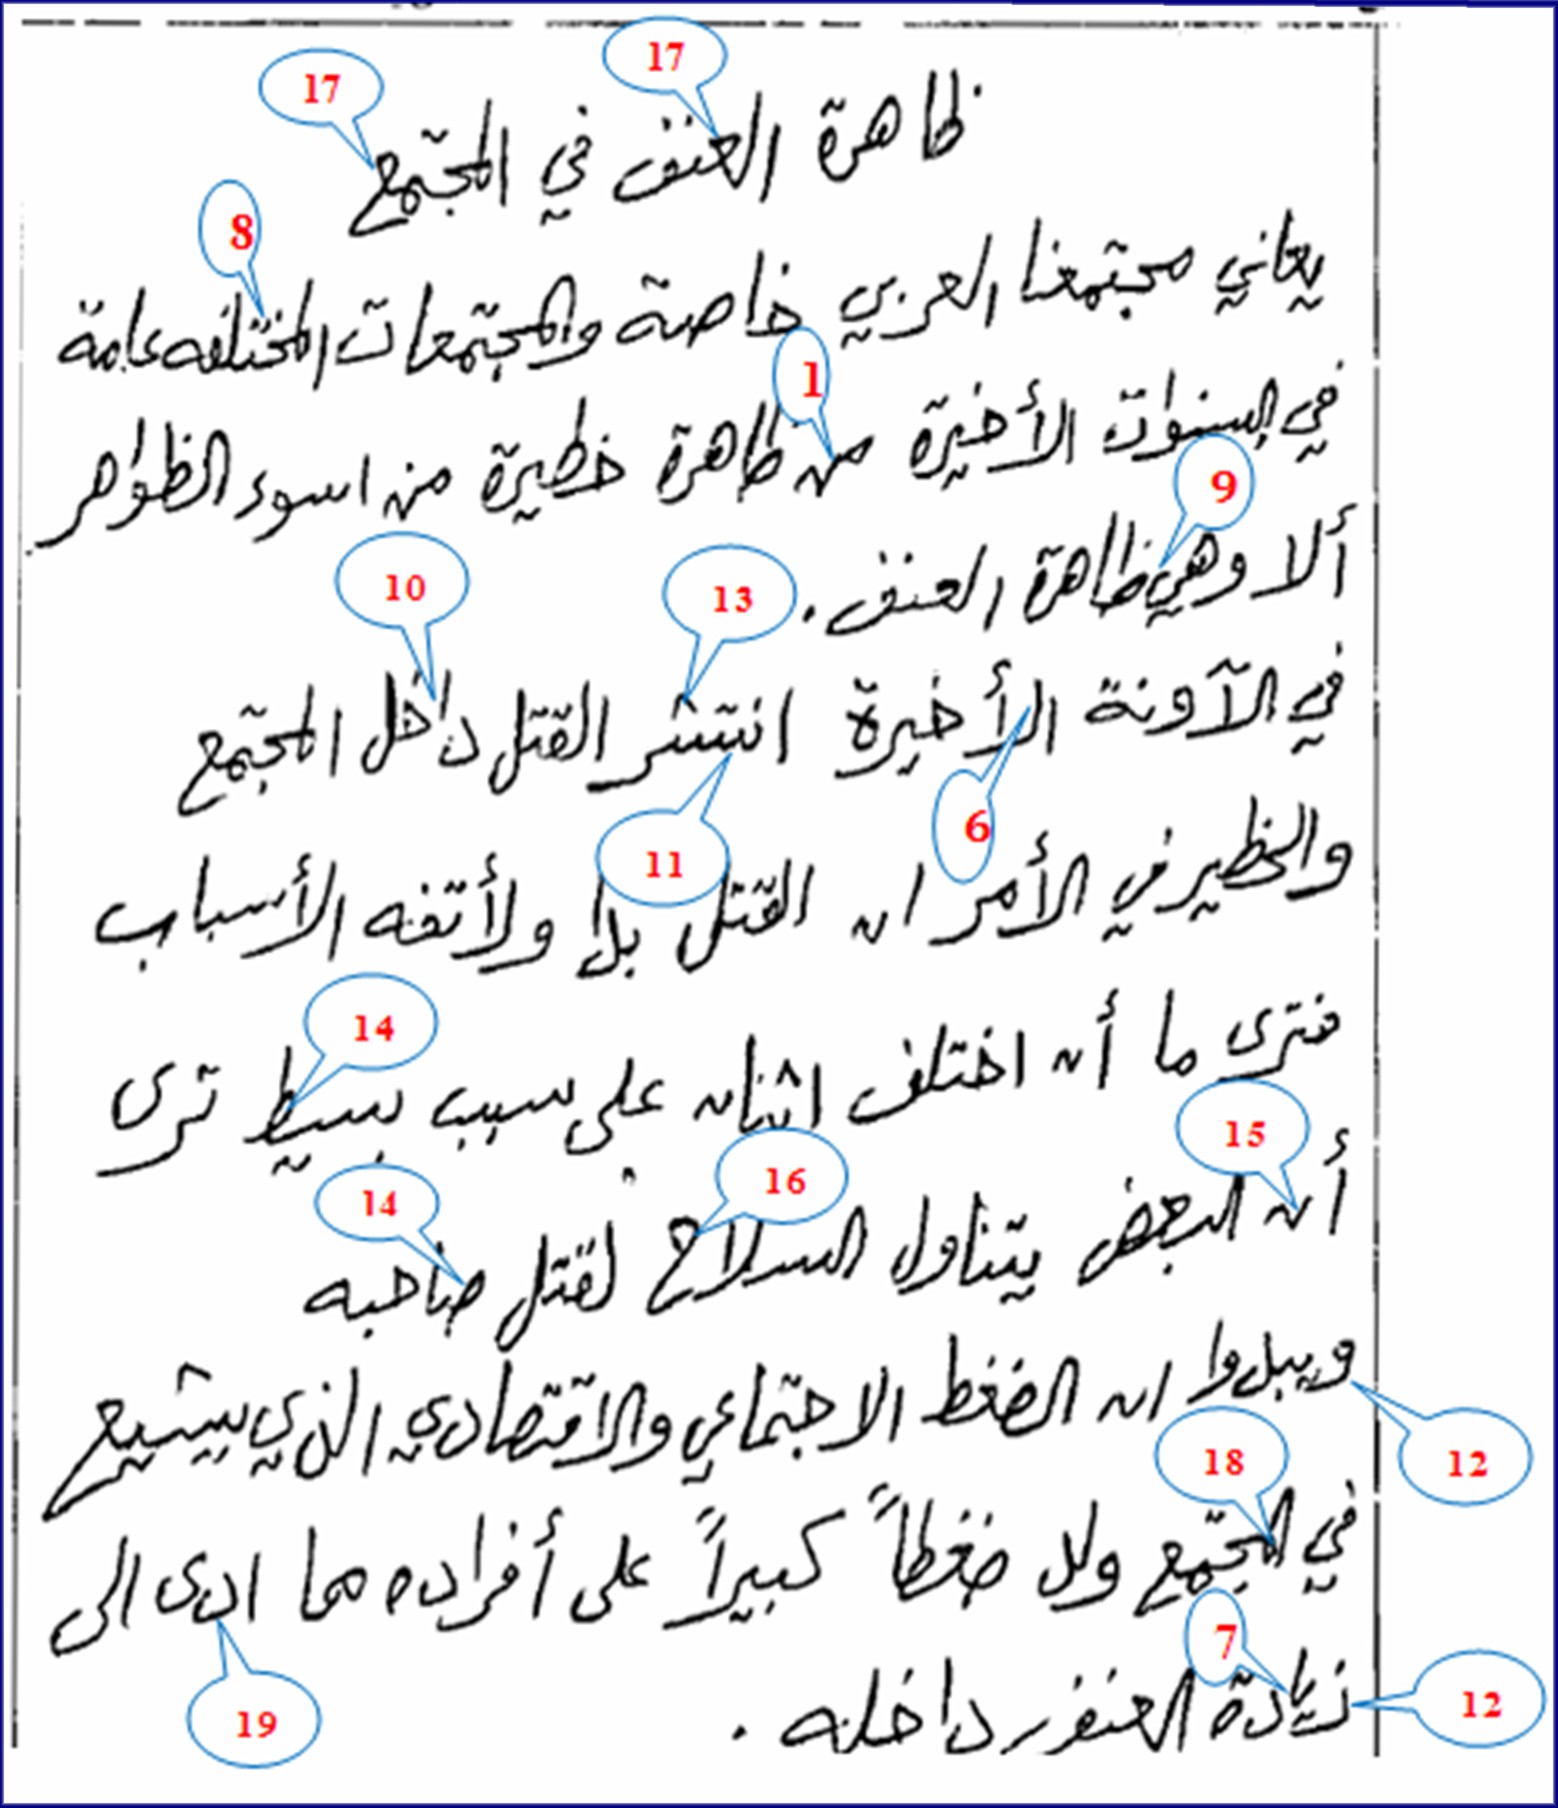 17 17
ظاهرة العنف في المجتمع
8
يعاني مجتمعنا العربي خاصة والمجتمعات المختلفه عامة
1
في السنوات الأخيرة من ظاهرة خطيرة من اسوء الظواهر
9
ألا وهي ظاهرة العنف.
13 10
في الآونة الأخيرة انتشر القتل داخل المجتمع
6 11
والخطير في الأمر ان القتل بدأ ولأتفه الأسباب
14
فترى ما أن اختلف اثنان على سبب بسيط ترى
15 16 14
أن البعض يتناول السلاح لقتل صاحبه
ويبدوا ان الضغط الاجتماعي والاقتصادي الذي يشيع
12 18
في المجتمع ولد ضغطاً كبيراً على أفراده مما ادى الى
7 19
زيادة العنف داخله.
12